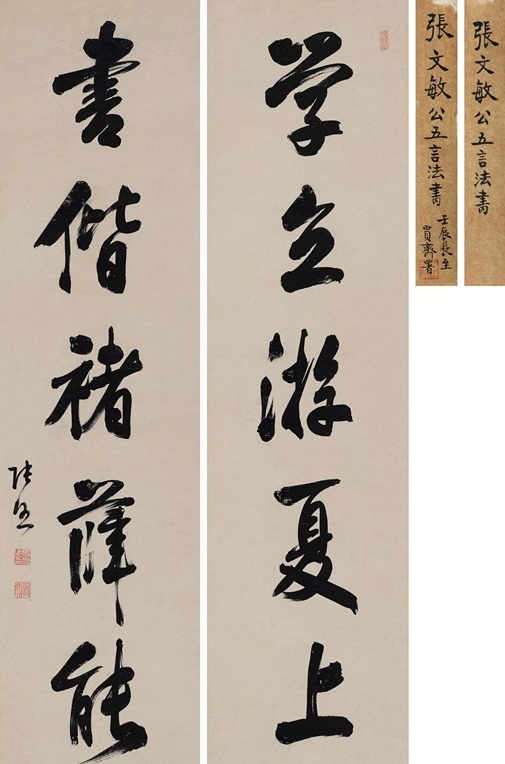 張文敏公五言法書
張文敏公五言法書
壬辰長至
学立游夏上
書偕褚薛能
张照